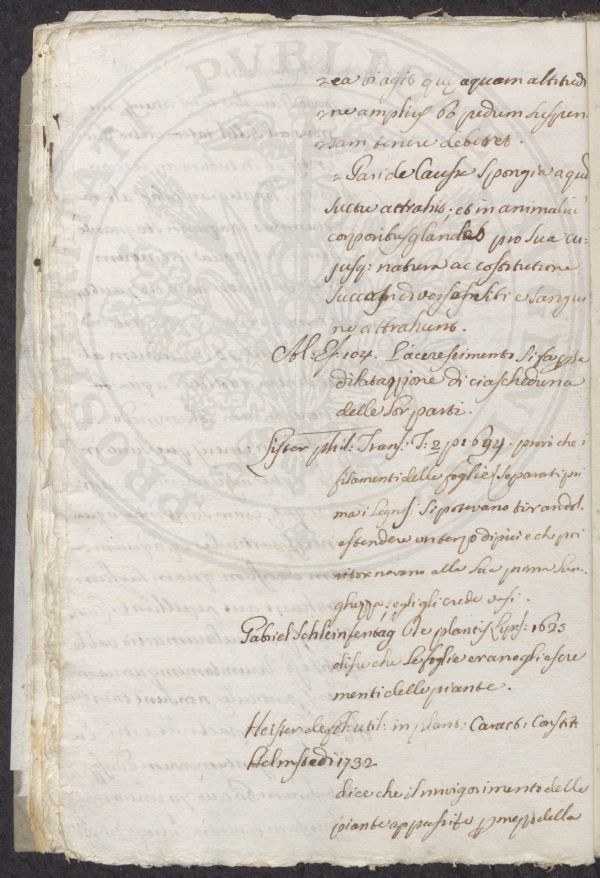 rea si agis quę aquam altitudi
ne amplius 60 pedum suspen
sam tenere deberet.
Pari de Causa Spongia aquā
suctu attrahis. et in animaliū
corporibus glandes pro sua cu-
jusq: natura ac costitutione
succos diversos e sangui
ne attrahunt.
Ess. 104. L'accrescimento si fa per la
dilatazzione di ciascheduna
delle lor parti.
Lister phil: Trans: T: 2 p: 1694. provò che i
filamenti delle foglie separati pri
ma i legnos. si potevano tirandol.
estendere un terzo di più e che poi
ritornavano alla sua prima lun
ghezza, egli gli crede vasi.
Gabriel Schleinsentag De plantis Lips: 1623
disse che le foglie erano gli escre
menti delle piante.
Heister de fol: util: in plant: Caract: Constit
Helmstedi 1732
dice che il rinvigorimento delle
piante appassite per mezzo della